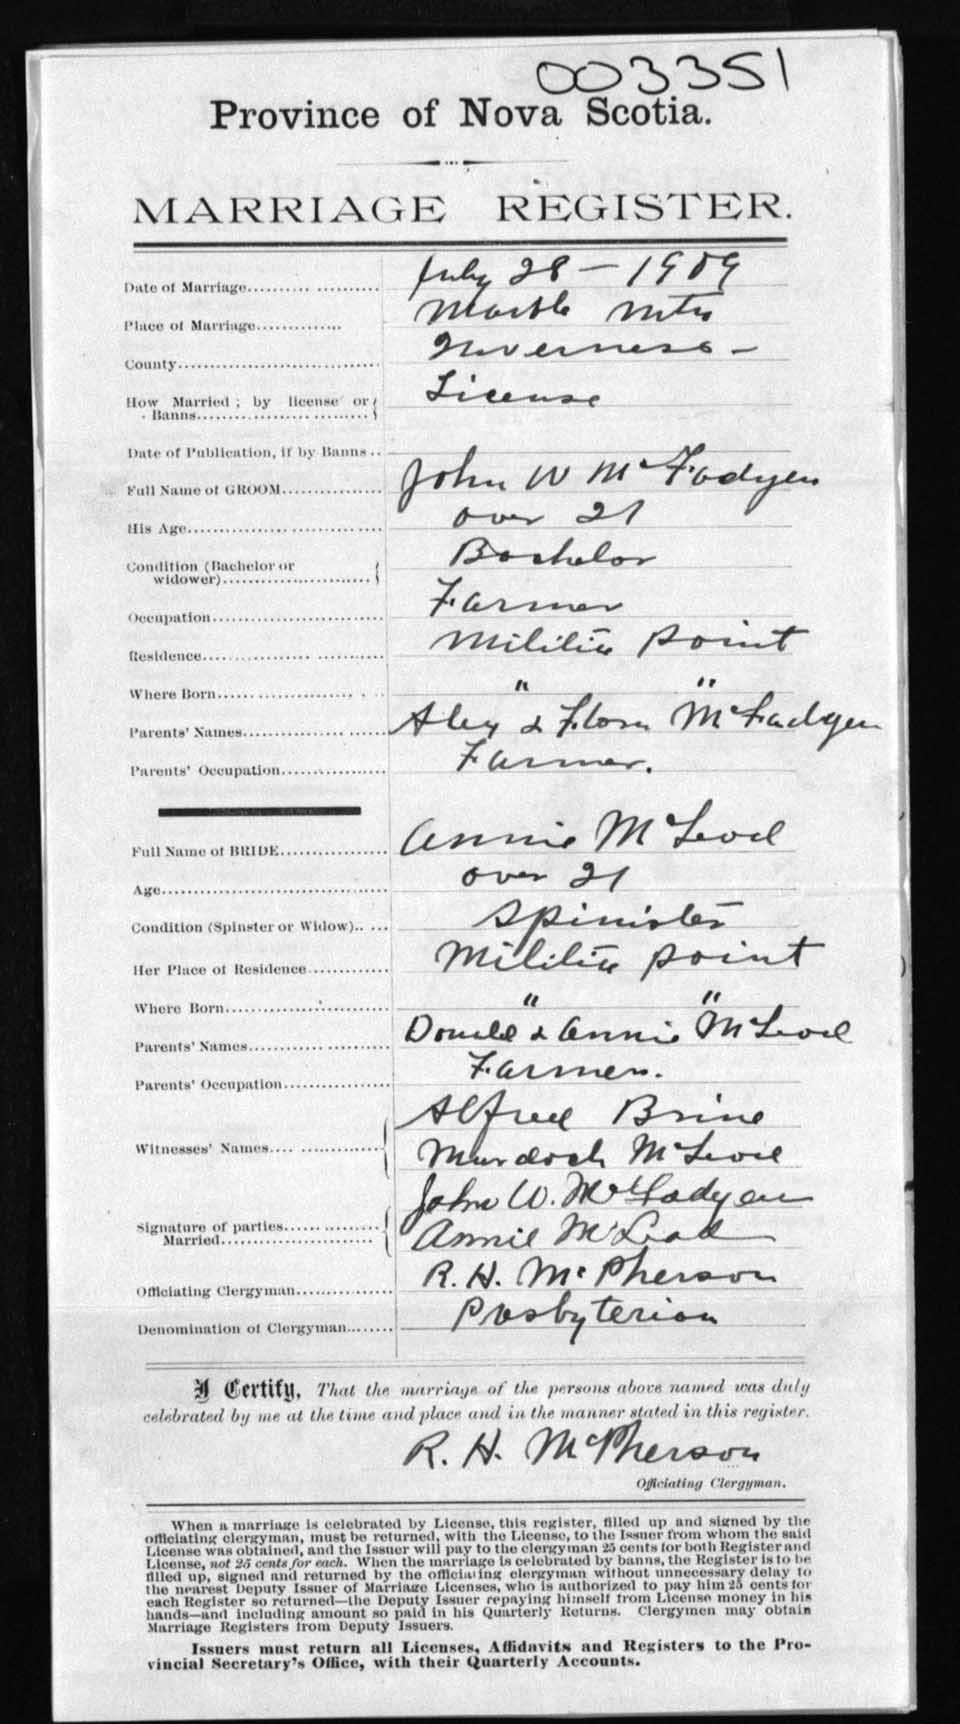 003351
Province of Nova Scotia.
MARRIAGE REGISTER.
Date of Marriage.................... July 28 – 1909
Place of Marriage.............. Marble Mtn
County................................ Inverness –
How Married ; by license or
Banns.......................... License
Date of Publication, if by Banns ..
Full Name of GROOM................ John W McFadyen
His Age................................ over 21
Condition (Bachelor or
widower)........................ Bachelor
Occupation............................ Farmer
Residence............................ Militia point
Where Born........................ " "
Parents' Names...................... Alex & Flora McFadyen
Parents' Occupation................ Farmer.
Full Name of BRIDE................. Annie McLeod
Age.................................... over 21
Condition (Spinster or Widow)..... Spinister
Her Place of Residence............. Militia point
Where Born.......................... " "
Parents' Names...................... Donald & Annie McLeod
Parents' Occupation................. Farmer.
Witnesses' Names.................. Alfred Brine
Murdoch McLeod
Signature of parties................ John W. McFadyen
Married.......................... Annie McLeod
Officiating Clergyman............... R. H. McPherson
Denomination of Clergyman........ Presbyterian
I Certify, That the marriage of the persons above named was duly
celebrated by me at the time and place and in the manner stated in this register.
R. H. McPherson
Officiating Clergyman.
When a marriage is celebrated by License, this register, filled up and signed by the
officiating clergyman, must be returned, with the License, to the Issuer from whom the said
License was obtained, and the Issuer will pay to the clergyman 25 cents for both Register and
License, not 25 cents for each. When the marriage is celebrated by banns, the Register is to be
filled up, signed and returned by the officiating clergyman without unnecessary delay to
the nearest Deputy Issuer of Marriage Licenses, who is authorized to pay him 25 cents for
each Register so returned—the Deputy Issuer repaying himself from License money in his
hands—and including amount so paid in his Quarterly Returns. Clergymen may obtain
Marriage Registers from Deputy Issuers.
Issuers must return all Licenses, Affidavits and Registers to the Pro-
vincial Secretary's Office, with their Quarterly Accounts.